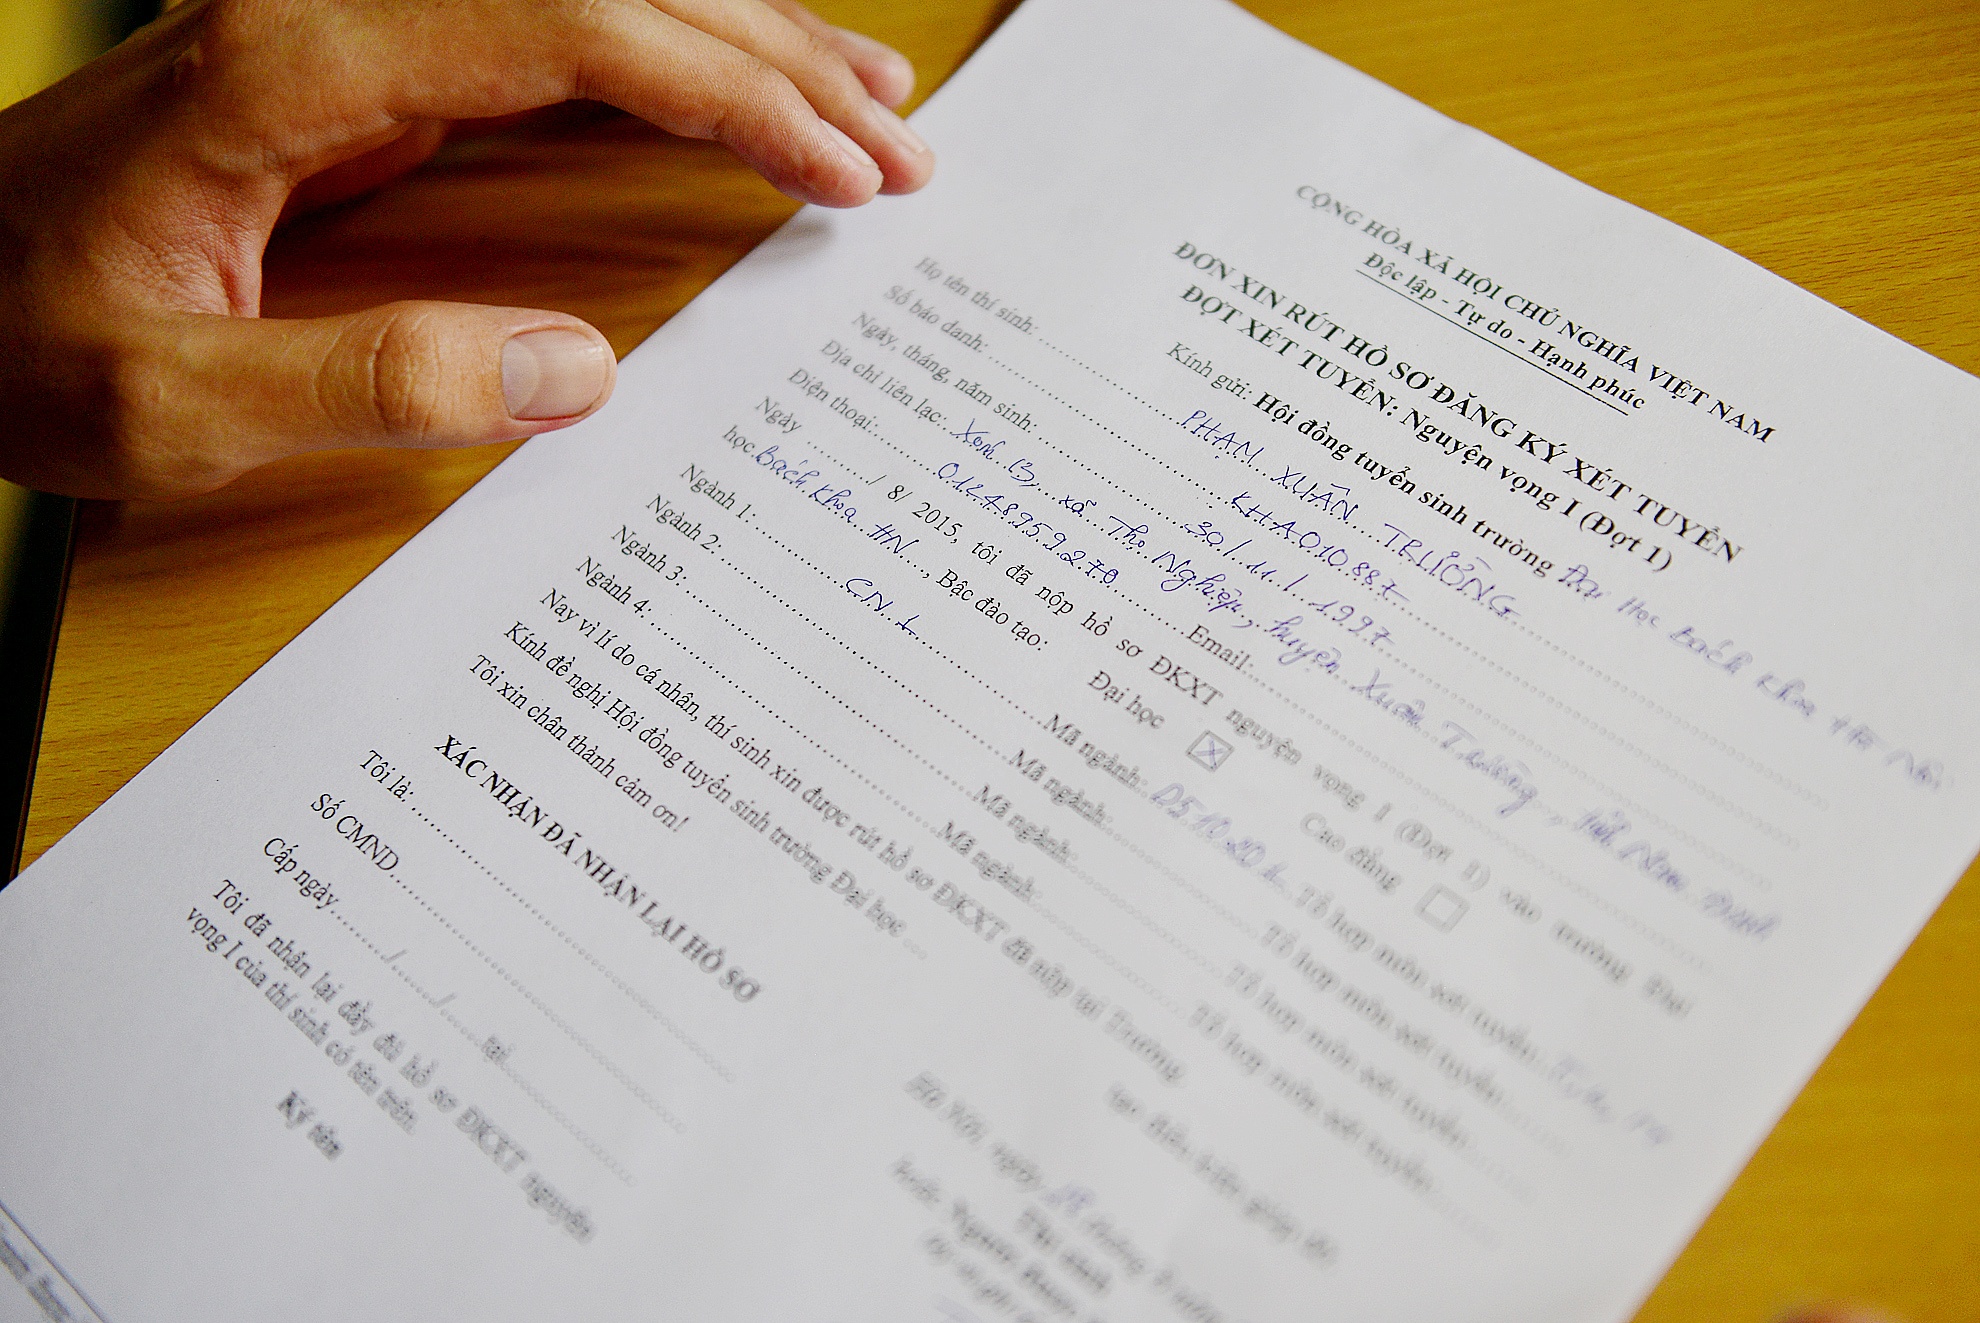 CỘNG HÒA XÃ HỘI CHỦ NGHĨA VIỆT NAM
Độc lập - Tự do - Hạnh phúc
ĐƠN XIN RÚT HỒ SƠ ĐĂNG KÝ XÉT TUYỂN
ĐỢT XÉT TUYỂN: Nguyện vọng I (Đợt 1)
Kính gửi: Hội đồng tuyển sinh trường Đại Học Bách Khoa Hà Nội
Họ tên thí sinh: PHẠM XUÂN TRƯỜNG
Số báo danh: KHA010887
Ngày, tháng, năm sinh: 30/11/1997
Địa chỉ liên lạc: Xóm 13, xã Thọ Nghiệp, huyện Xuân Trường, tỉnh Nam Định
Điện thoại: 01248959270 Email:
Ngày ......../ 8/ 2015, tôi đã nộp hồ sơ ĐKXT nguyện vọng I (Đợt 1) vào trường Đại
học Bách Khoa HN, Bậc đào tạo: Đại học Cao đẳng
Ngành 1: CN1 Mã ngành: Tổ hợp môn xét tuyển:
Ngành 2: Mã ngành: Tổ hợp môn xét tuyển:
Ngành 3: Mã ngành: Tổ hợp môn xét tuyển:
Ngành 4: Mã ngành: Tổ hợp môn xét tuyển:
Nay vì lí do cá nhân, thí sinh xin được rút hồ sơ ĐKXT đã nộp tại Trường
Kính đề nghị Hội đồng tuyển sinh trường Đại học ... tạo điều kiện giúp đỡ
Tôi xin chân thành cảm ơn!
XÁC NHẬN ĐÃ NHẬN LẠI HỒ SƠ
Tôi là:
Số CMND
Cấp ngày....../....../......tại
Tôi đã nhận lại đầy đủ hồ sơ ĐKXT nguyện
vọng I của thí sinh có tên trên.
Ký tên
Hà Nội, ngày
Thí sinh